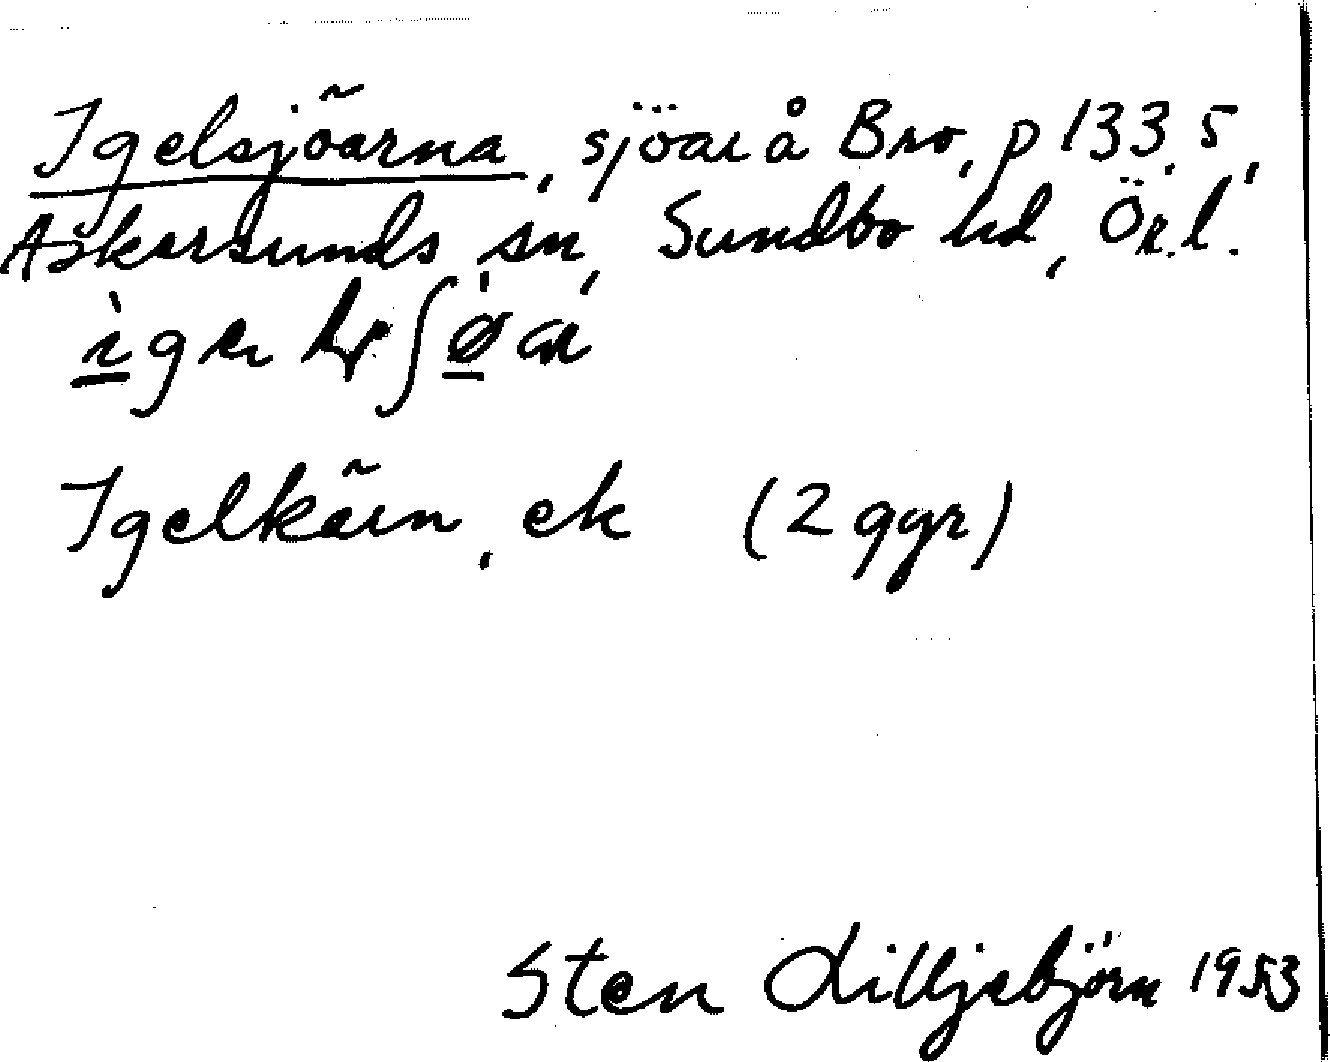 Igelsjöarna, sjöar å Bro, p 133.5,
Askersunds sn, Sundbo hd, Ör.l.
Igelkärn, ek (2 ggr)
Sten Lilljebjörn 1953